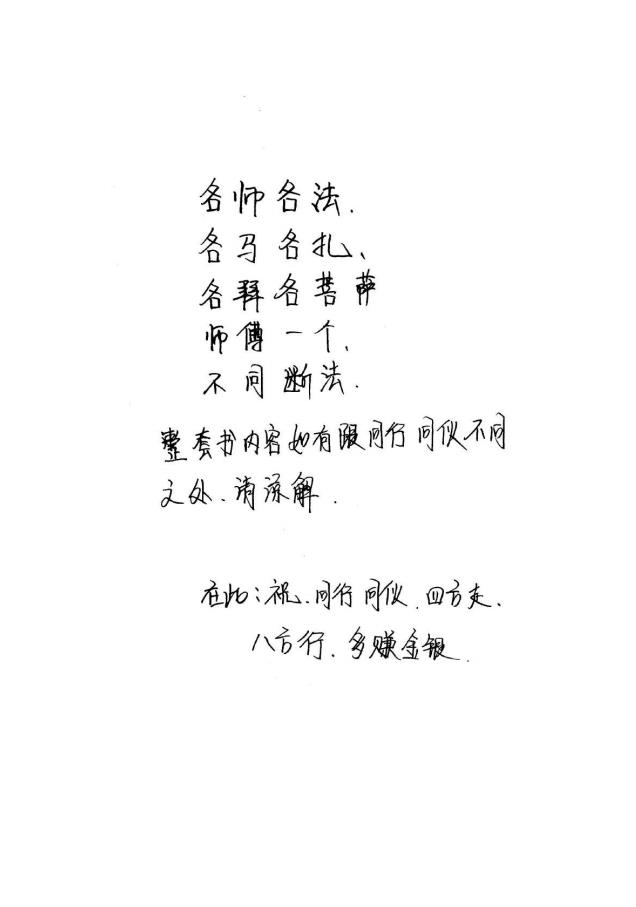 各师各法.
各马各扎、
各拜各菩萨
师傅一个、
不同断法.
整套书内容如有跟同行同仪不同
之处、请谅解.
在此:祝、同行同仪、四方走、
八方行、多赚金银.